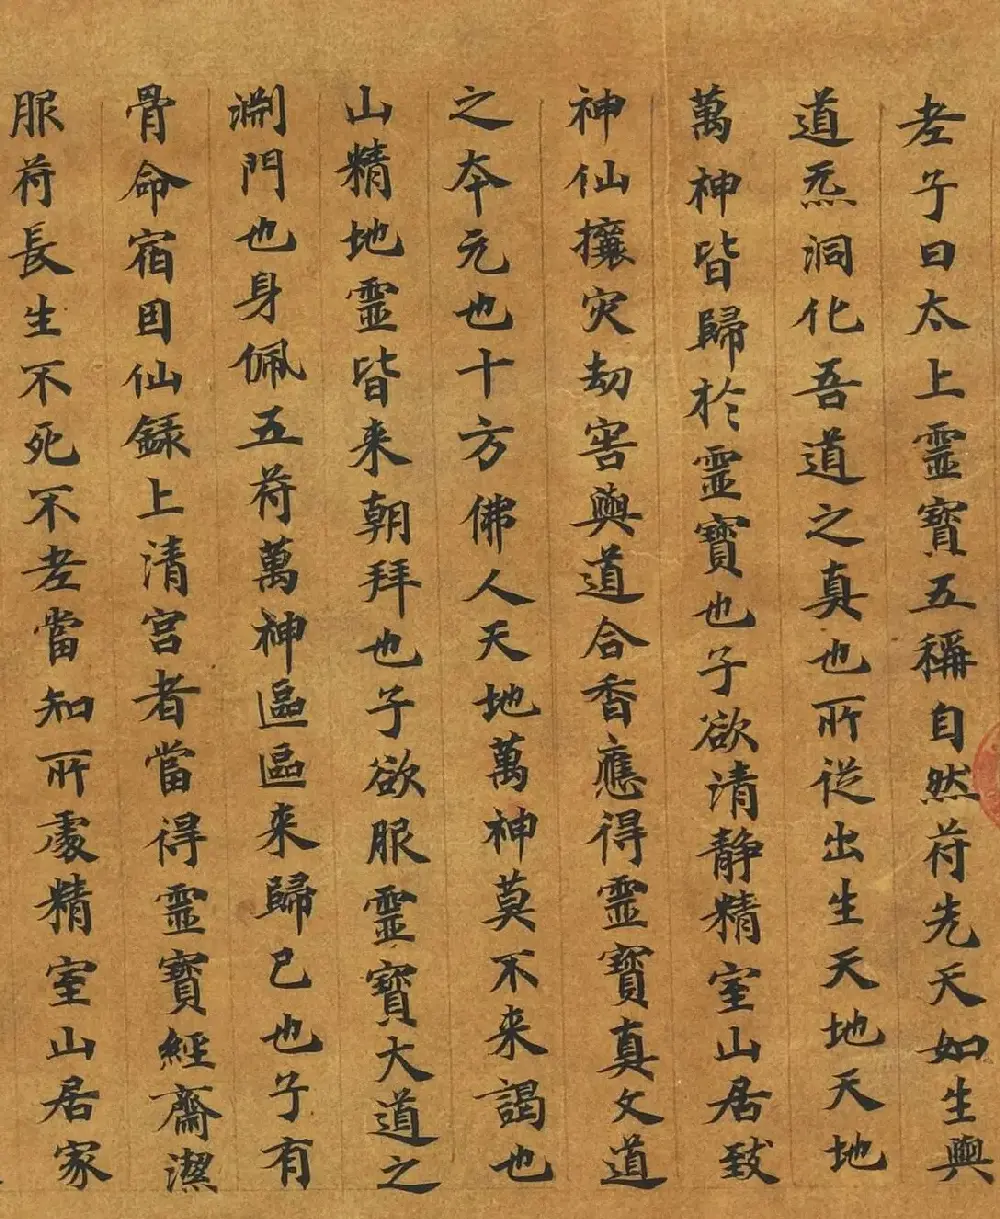 老子曰太上靈寶五稱自然符先天如生與
道炁洞化吾道之真也所從出生天地天地
萬神皆歸於靈寶也子欲清靜精室山居致
神仙攘灾劫害與道合香應得靈寶真文道
之本元也十方佛人天地萬神莫不来謁也
山精地靈皆来朝拜也子欲服靈寶大道之
淵門也身佩五符萬神區區来歸已也子有
骨命宿因仙録上清宮者當得靈寶經齋潔
服符長生不死不老當知所處精室山居家